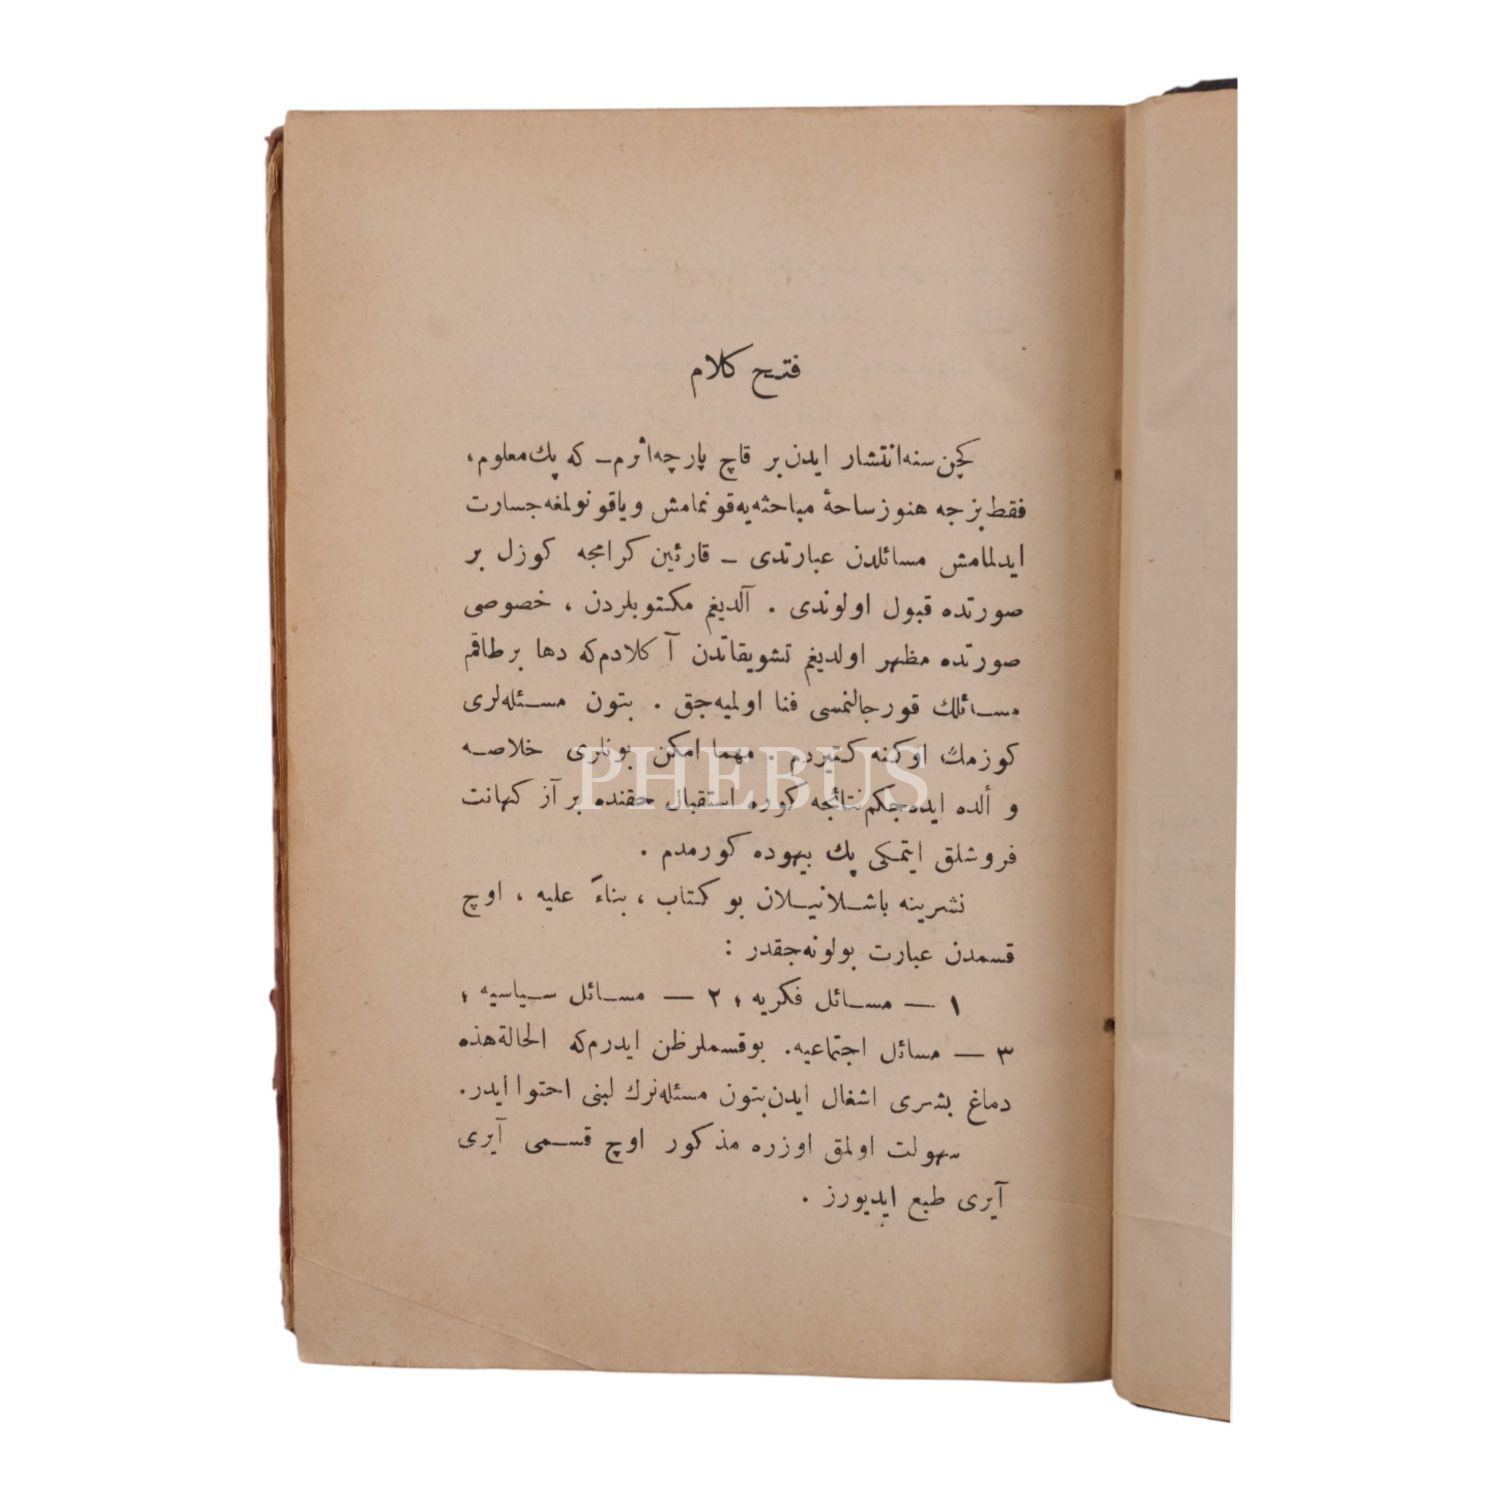 فتح كلام
كچن سنه انتشار ايدن بر قاچ پارچه اثرم ـ كه پك معلوم،
فقط بزجه هنوز ساحۀ مباحثه يه قونمامش وياقونولمغه جسارت
ايدلمامش مسائلدن عبارتدى ـ قارئين كرامجه كوزل بر
صورتده قبول اولوندى . آلديغم مكتوبلردن ، خصوصى
صورتده مظهر اولديغم تشويقاتدن آكلادم كه دها بر طاقم
مسائلك قورجالنمسى فنا اولميه جق . بتون مسئله لرى
كوزمك اوكنه كتيردم . مهما امكن بونلرى خلاصه
و ألده ايده جكم نتائجه كوره استقبال حقنده بر آز كهانت
فروشلق ايتمكى پك بيهوده كورمدم .
نشرينه باشلانيلان بو كتاب ، بناءً عليه ، اوچ
قسمدن عبارت بولونه جقدر :
١ — مسائل فكريه ؛ ٢ — مسائل سياسيه ؛
٣ — مسائل اجتماعيه. بوقسملر ظن ايدرم كه الحالة هذه
دماغ بشرى اشغال ايدن بتون مسئله لرك لبنى احتوا ايدر.
سهولت اولمق اوزره مذكور اوچ قسمى آيرى
آيرى طبع ايديورز .
PHEBUS